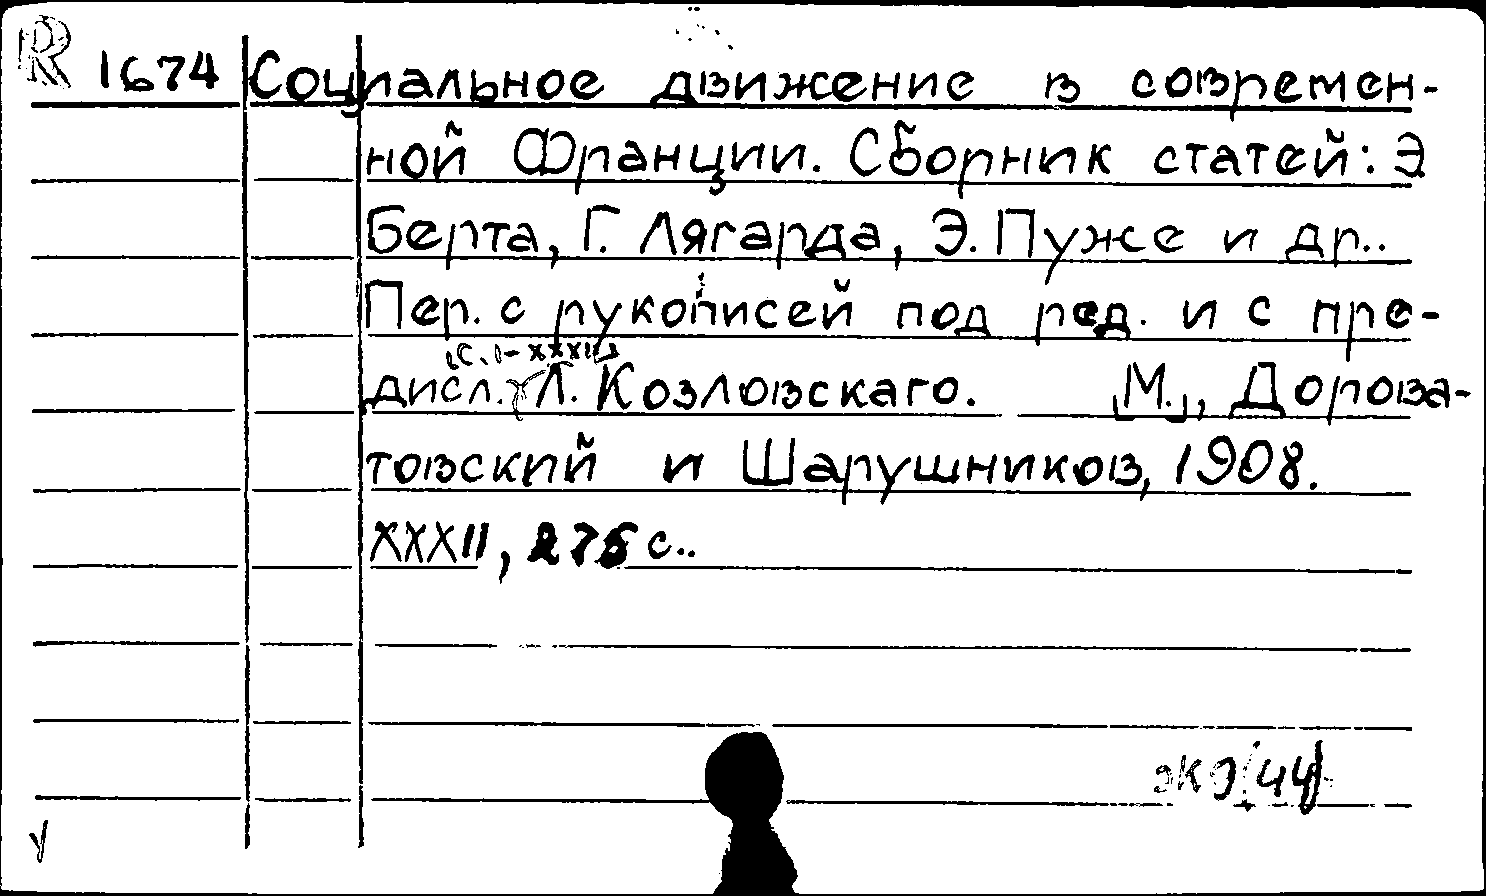 R 1674 Социальное движение в современ-
ной Франции. Сборник статей: Э
Берта, Г. Лягарда, Э. Пуже и др..
Пер. с рукописей под ред. и с пре-
[с. I-XXXII]
дисл. Л. Козловскаго. [М.], Дорова-
товский и Шарушников, 1908.
XXXII, 275 с..